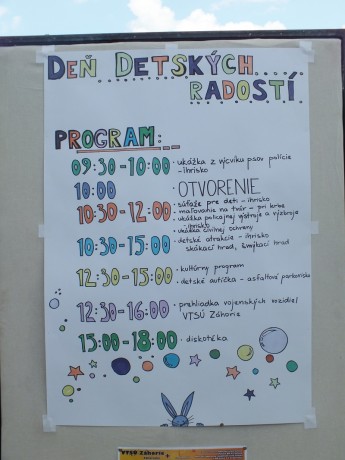 DEŇ DETSKÝCH
RADOSTÍ
PROGRAM:
09:30-10:00 · ukážka z výcviku psov polície
-ihrisko
10:00 OTVORENIE
10:30-12:00 · súťaže pre deti - ihrisko
· maľovanie na tvár - pri krbe
· ukážka policajnej výstroje a výzbroje
-ihrisko
· ukážka civilnej ochrany
10:30-15:00 · detské atrakcie - ihrisko
skákací hrad, šmýkací hrad
12:30-15:00 · kultúrny program
· detské autíčka - asfaltové parkovisko
12:30-16:00 · prehliadka vojenských vozidiel
VTSÚ Záhorie
15:00-18:00 · diskotéka
VTSÚ Záhorie